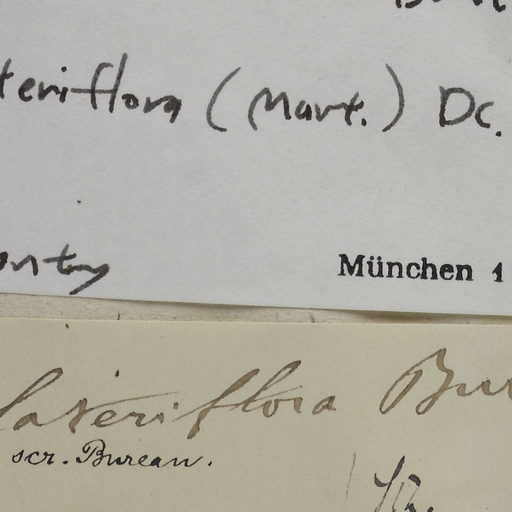 teriflora (Mart.) DC.
München 1
lateriflora Bur
scr. Bureau.